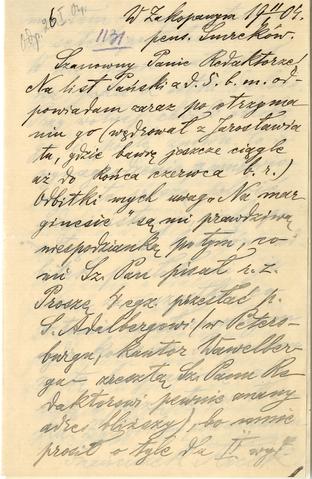 26/I 04.
W Zakopanem 19 11/I 04.
1131
pens. Smreków.
Szanowny Panie Redaktorze,
Na list Pański z d. 5. b. m. od-
powiadam zaraz po otrzyma-
niu go (wędrował z Jarosławia
tu, gdzie bawię jeszcze ciągle
aż do końca czerwca b. r.)
Odbitki mych uwag „Na mar-
ginesie" są mi prawdziwą
niespodzianką po tym, co
mi Sz. Pan pisał r. z.
Proszę 4 egz. przesłać p.
S. Adelbergowi (w Peters-
burgu, kantor Wawelber-
ga – zresztą Sz. Panu Re-
daktorowi pewnie znany
adres bliższy), bo mnie
prosił o tyle dla II wyd.